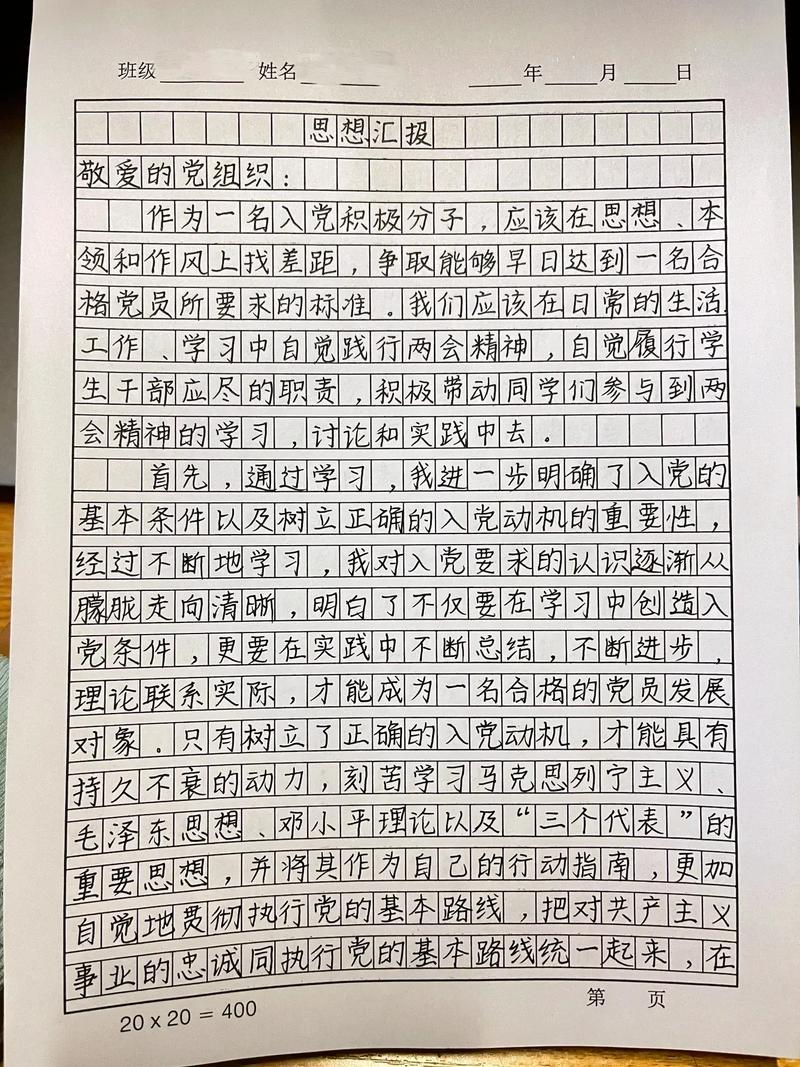 班级 姓名 年 月 日
思想汇报
敬爱的党组织:
作为一名入党积极分子,应该在思想、本
领和作风上找差距,争取能够早日达到一名合
格党员所要求的标准。我们应该在日常的生活
工作、学习中自觉践行两会精神,自觉履行学
生干部应尽的职责,积极带动同学们参与到两
会精神的学习,讨论和实践中去。
首先,通过学习,我进一步明确了入党的
基本条件以及树立正确的入党动机的重要性,
经过不断地学习,我对入党要求的认识逐渐从
朦胧走向清晰,明白了不仅要在学习中创造入
党条件,更要在实践中不断总结,不断进步,
理论联系实际,才能成为一名合格的党员发展
对象。只有树立了正确的入党动机,才能具有
持久不衰的动力,刻苦学习马克思列宁主义、
毛泽东思想、邓小平理论以及“三个代表”的
重要思想,并将其作为自己的行动指南,更加
自觉地贯彻执行党的基本路线,把对共产主义
事业的忠诚同执行党的基本路线统一起来,在
20 x 20 = 400 第 页